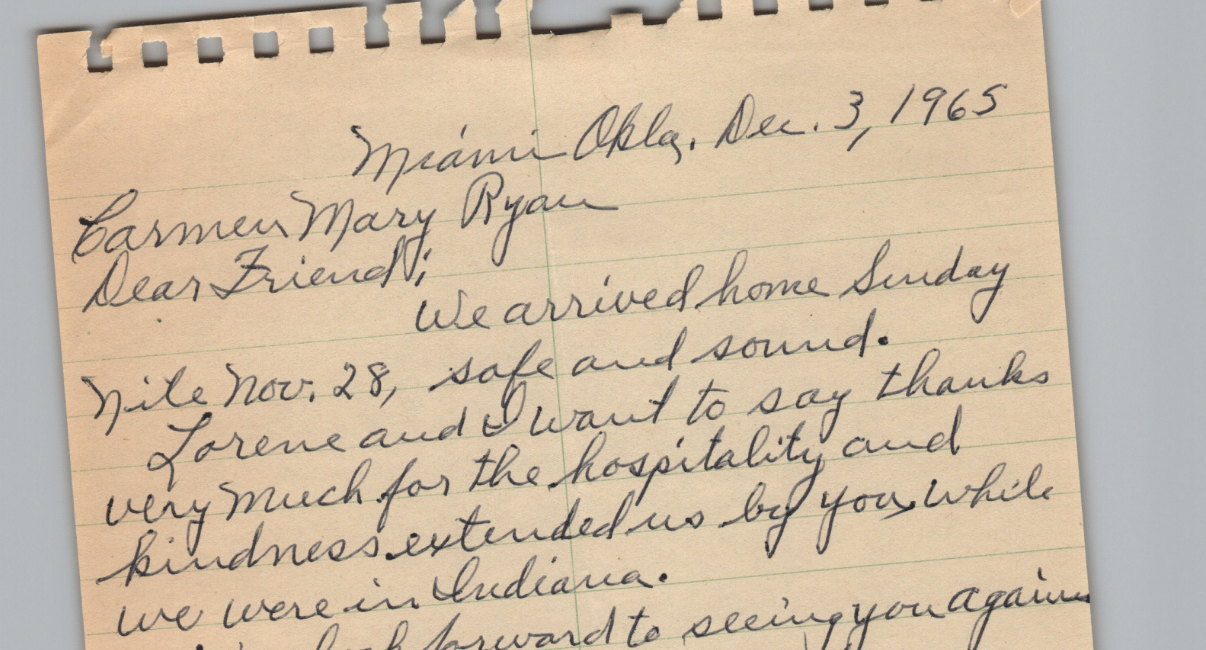 Miami Okla. Dec. 3, 1965
Carmen Mary Ryan
Dear Friend;
We arrived home Sunday
nite Nov. 28, safe and sound.
Lorene and I want to say thanks
very much for the hospitality and
kindness extended us by you while
we were in Indiana.
look forward to seeing you again